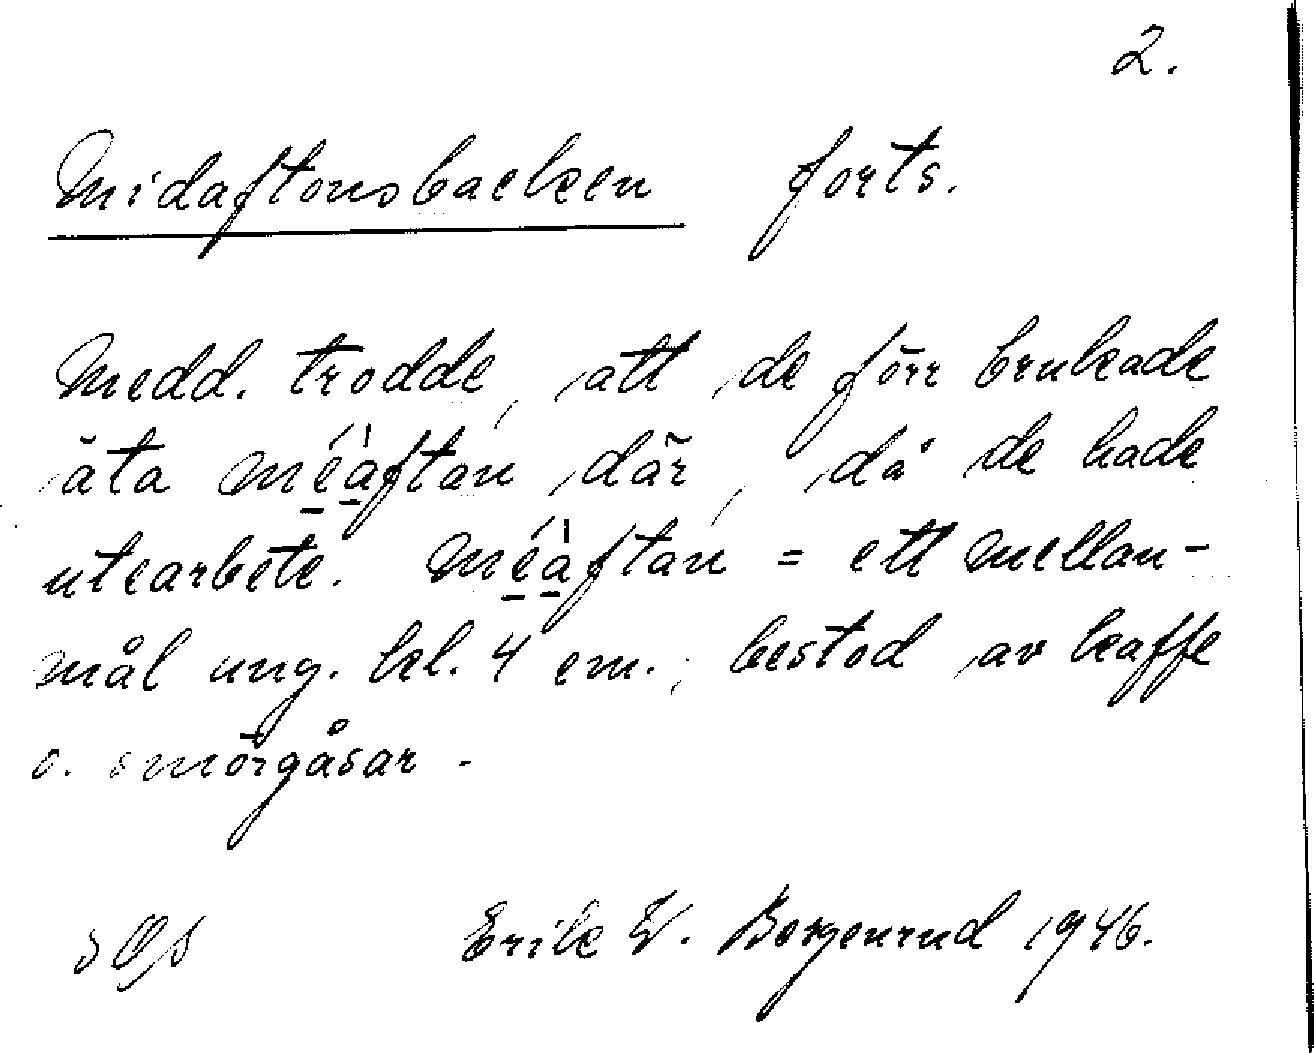 2.
Midaftonsbacken forts.
Medd. trodde, att de förr brukade
äta mé̱à̱ftan där, då de hade
utearbete. Mé̱à̱ftan = ett mellan-
mål ung. kl. 4 em., bestod av kaffe
o. smörgåsar.
Erik W. Bergenrud 1946.